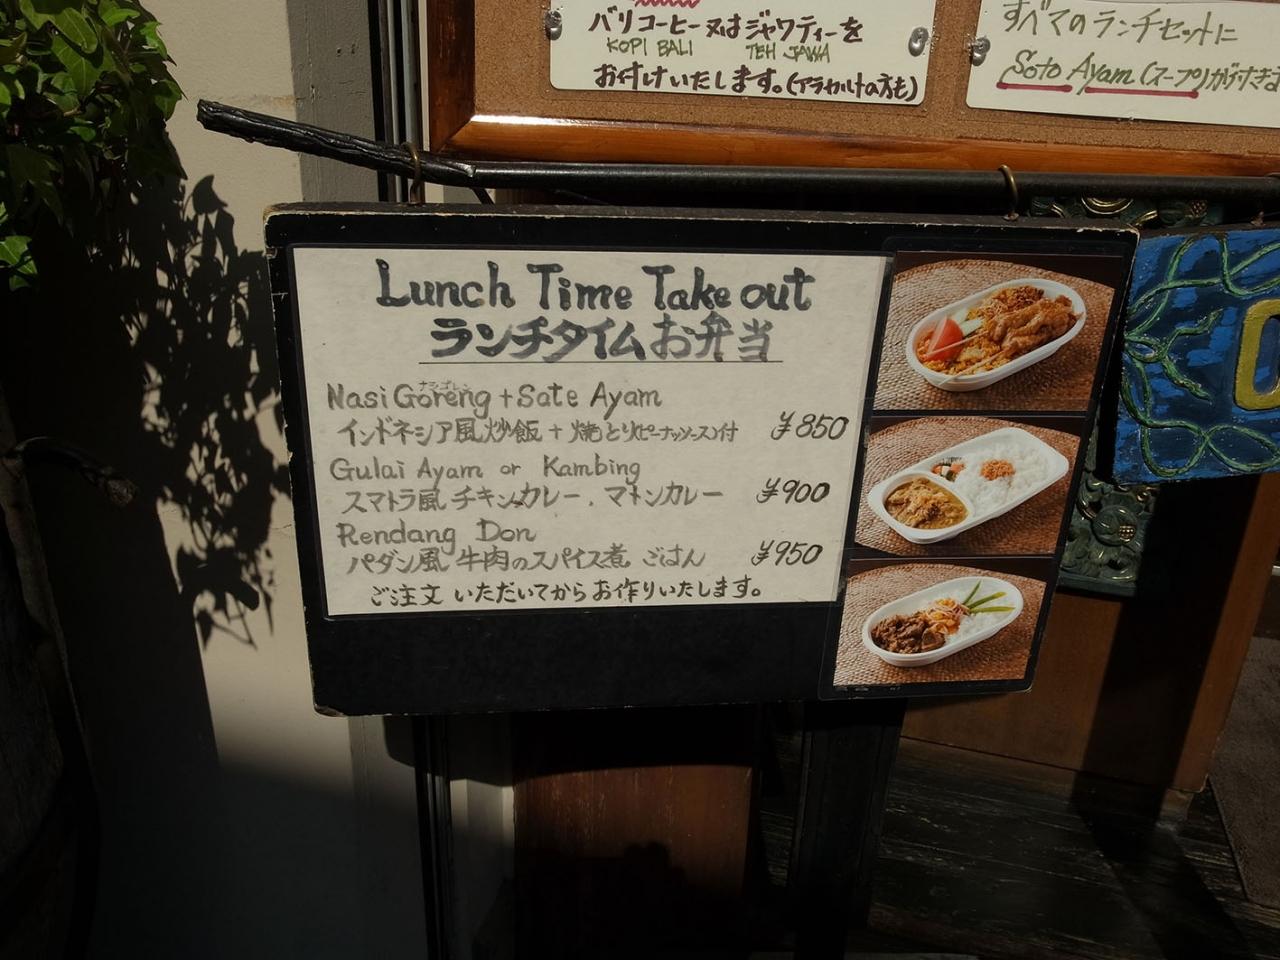 バリコーヒー又はジャワティーを
KOPI BALI TEH JAWA
お付けいたします。(アラカルトの方も)
すべてのランチセットに
Soto Ayam (スープ)が付きま
Lunch Time Take out
ランチタイムお弁当
ナシゴレン
Nasi Goreng + Sate Ayam
インドネシア風炒飯 + 焼とり(ピーナッツソース)付 ¥850
Gulai Ayam or Kambing
スマトラ風チキンカレー、マトンカレー ¥900
Rendang Don
パダン風 牛肉のスパイス煮 ごはん ¥950
ご注文いただいてからお作りいたします。